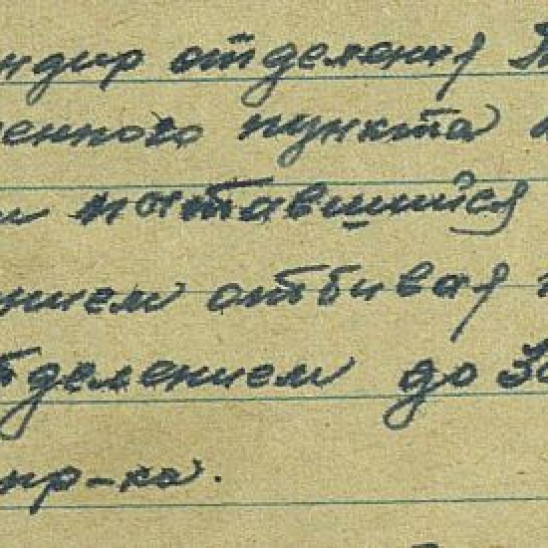 ндир отделения
енного пункта
оставшийся
нием отбивая
отделением до 30
пр-ка.